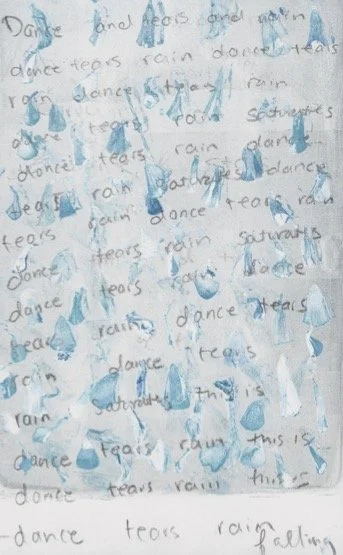 Dance and tears and rain
dance tears rain dance tears
rain dance tears rain
dance tears rain saturates
dance tears rain dance
tears rain saturates dance
tears rain dance tears rain
tears tears rain saturates
dance rain dance
dance tears dance tears
tears rain
rain dance tears
rain saturates this is
dance tears rain this is
dance tears rain this is
dance tears rain falling